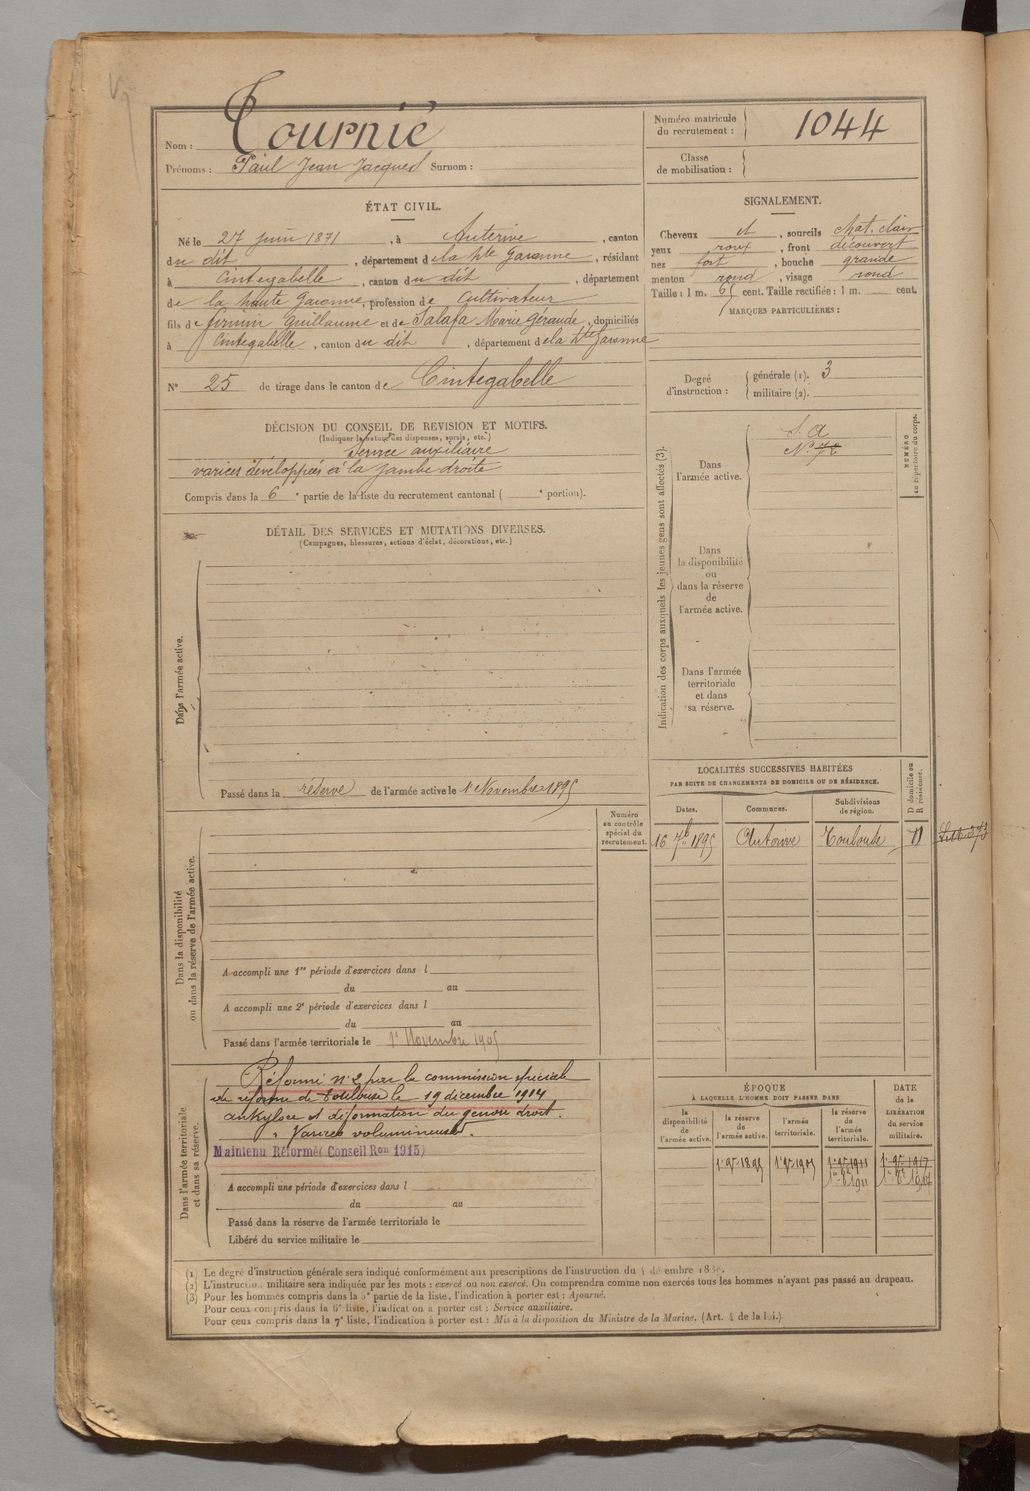 Nom : Tournié
Prénoms : Paul Jean Jacques Surnom :
Numéro matricule du recrutement : 1044
Classe de mobilisation :
ÉTAT CIVIL.
Né le 27 juin 1871, à Auterive, canton
du dit, département de la Hte Garonne, résidant
à Cintegabelle, canton du dit, département
de la haute Garonne, profession de Cultivateur
fils de firmin Guillaume et de Salafa Marie Géraude, domiciliés
à Cintegabelle, canton du dit, département de la Hte Garonne
N° 25 de tirage dans le canton de Cintegabelle
SIGNALEMENT.
Cheveux et, sourcils chat. clair
yeux roux, front découvert
nez fort, bouche grande
menton rond, visage rond
Taille : 1 m. 65 cent. Taille rectifiée : 1 m. cent.
MARQUES PARTICULIÈRES :
Degré d'instruction : générale (1). 3
militaire (2).
DÉCISION DU CONSEIL DE REVISION ET MOTIFS.
(Indiquer la nature des dispenses, sursis, etc.)
Service auxiliaire
varices développées à la jambe droite
Compris dans la 6e partie de la liste du recrutement cantonal ( e portion).
DÉTAIL DES SERVICES ET MUTATIONS DIVERSES.
(Campagnes, blessures, actions d'éclat, décorations, etc.)
Dans l'armée active.
Passé dans la réserve de l'armée active le 1er Novembre 1895
Indication des corps auxquels les jeunes gens sont affectés (3).
Dans l'armée active.
S. A
Dans la disponibilité ou dans la réserve de l'armée active.
Dans l'armée territoriale et dans sa réserve.
NUMÉRO au répertoire du corps.
LOCALITÉS SUCCESSIVES HABITÉES
PAR SUITE DE CHANGEMENTS DE DOMICILE OU DE RÉSIDENCE.
Dates. Communes. Subdivisions de région. D domicile ou R résidence.
16 7bre 1895 Auterive Toulouse D
Dans la disponibilité ou dans la réserve de l'armée active.
Numéro au contrôle spécial du recrutement.
A accompli une 1re période d'exercices dans l
du au
A accompli une 2e période d'exercices dans l
du au
Passé dans l'armée territoriale le 1er Novembre 1905
Dans l'armée territoriale et dans sa réserve.
Réformé n° 2 par la commission spéciale
de réforme de Toulouse le 19 décembre 1914
ankylose et déformation du genou droit.
Varices volumineuses.
Maintenu Réformé (Conseil Ron 1915)
A accompli une période d'exercices dans l
du au
Passé dans la réserve de l'armée territoriale le
Libéré du service militaire le
ÉPOQUE
À LAQUELLE L'HOMME DOIT PASSER DANS
la disponibilité de l'armée active.
la réserve de l'armée active.
l'armée territoriale.
la réserve de l'armée territoriale.
DATE de la LIBÉRATION du service militaire.
1er 9bre 1895 1er 9bre 1905 1er 9bre 1911 1er 9bre 1917
1911 1917
(1) Le degré d'instruction générale sera indiqué conformément aux prescriptions de l'instruction du 4 décembre 1889.
(2) L'instruction militaire sera indiquée par les mots : exercé ou non exercé. On comprendra comme non exercés tous les hommes n'ayant pas passé au drapeau.
(3) Pour les hommes compris dans la 5e partie de la liste, l'indication à porter est : Ajourné.
Pour ceux compris dans la 6e liste, l'indication à porter est : Service auxiliaire.
Pour ceux compris dans la 7e liste, l'indication à porter est : Mis à la disposition du Ministre de la Marine. (Art. 4 de la loi.)